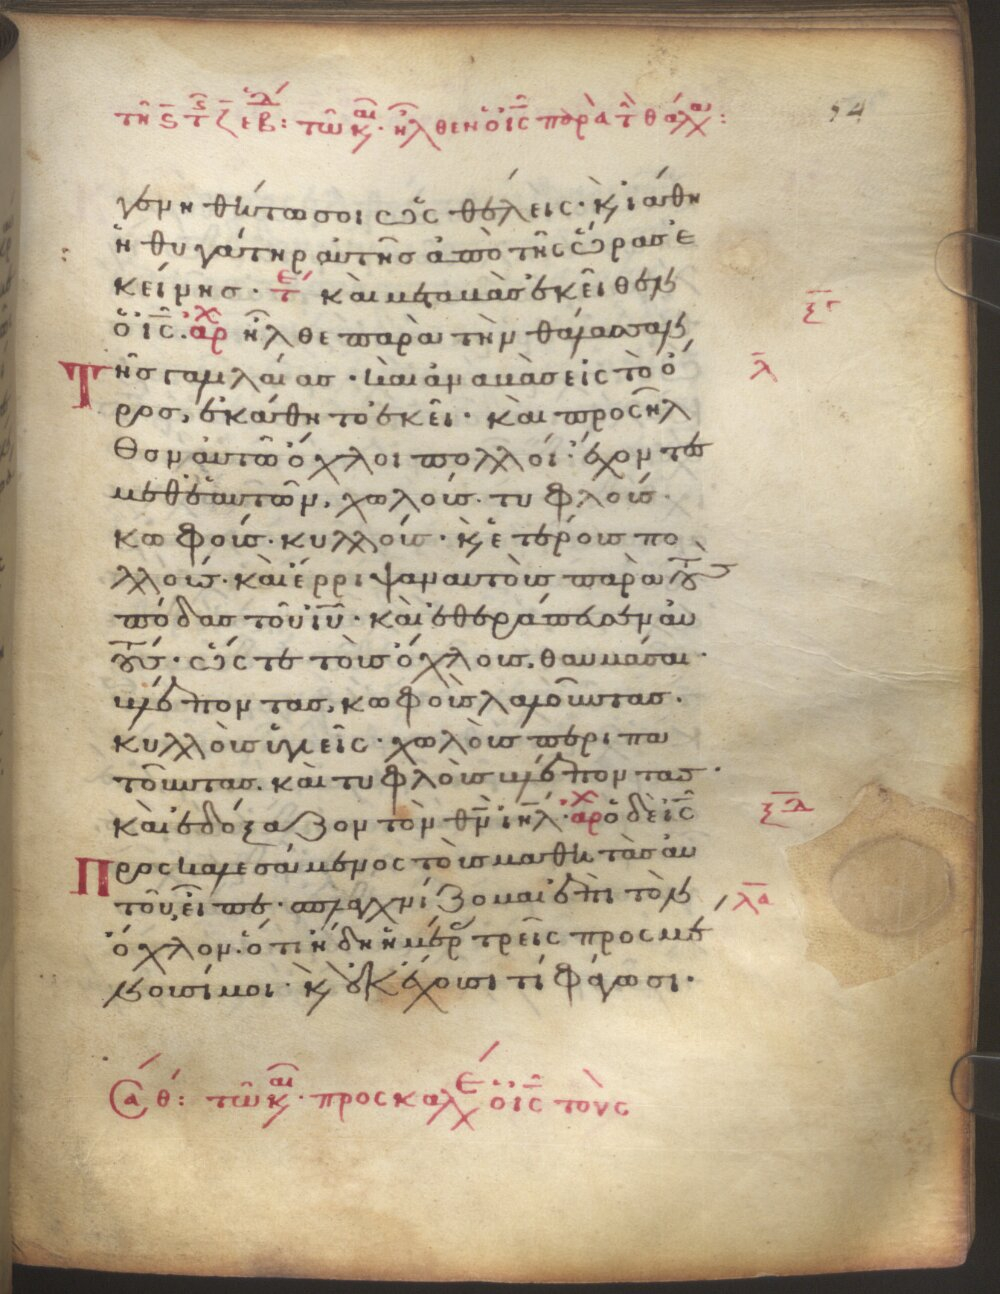 τῆ ϛ τ ζ εβ: τῶ κ. ἦλθεν ὁ ἰς παρὰ τ θάλ:
54
γενηθήτω σοι ὡς θέλεις· κ ἰάθη
ἡ θυγάτηρ αὐτῆς ἀπὸ τῆς ὥρας ἐ
κείνης· τε καὶ μεταβὰς ἐκεῖθεν
ὁ ις. αρχ ἦλθε παρὰ τὴν θάλασσαν
τῆς γαλιλαίας· καὶ ἀναβὰς εἰς τὸ ὄ
ρος, ἐκάθητο ἐκεῖ· καὶ προσῆλ
θον αὐτῶ ὄχλοι πολλοί· ἔχοντες
μεθ' ἑαυτῶν, χωλούς· τυφλούς·
κωφούς· κυλλούς· κ ἑτέρους πο
λλούς· καὶ ἔρριψαν αὐτοὺς παρὰ τοὺς
πόδας τοῦ ιυ· καὶ ἐθεράπευσεν αὐ
τούς· ὥστε τοὺς ὄχλους θαυμάσαι·
βλέποντας, κωφοὺς λαλοῦντας·
κυλλοὺς ὑγιεῖς· χωλοὺς περιπα
τοῦντας. καὶ τυφλοὺς βλέποντας·
καὶ ἐδόξαζον τὸν θν ιηλ· αρχ ὁ δὲ ις
προσκαλεσάμενος τοὺς μαθητὰς αὐ
τοῦ, εἶπε· σπλαγχνίζομαι ἐπὶ τὸν
ὄχλον· ὅτι ἤδη ἡμέρ τρεῖς προσμέ
νουσί μοι· κ οὐκ ἔχουσι τί φάγωσι·
ξγ
λ
ξδ
λα
Σα θ: τῶ κ· προσκαλ ὁ ις τοὺς